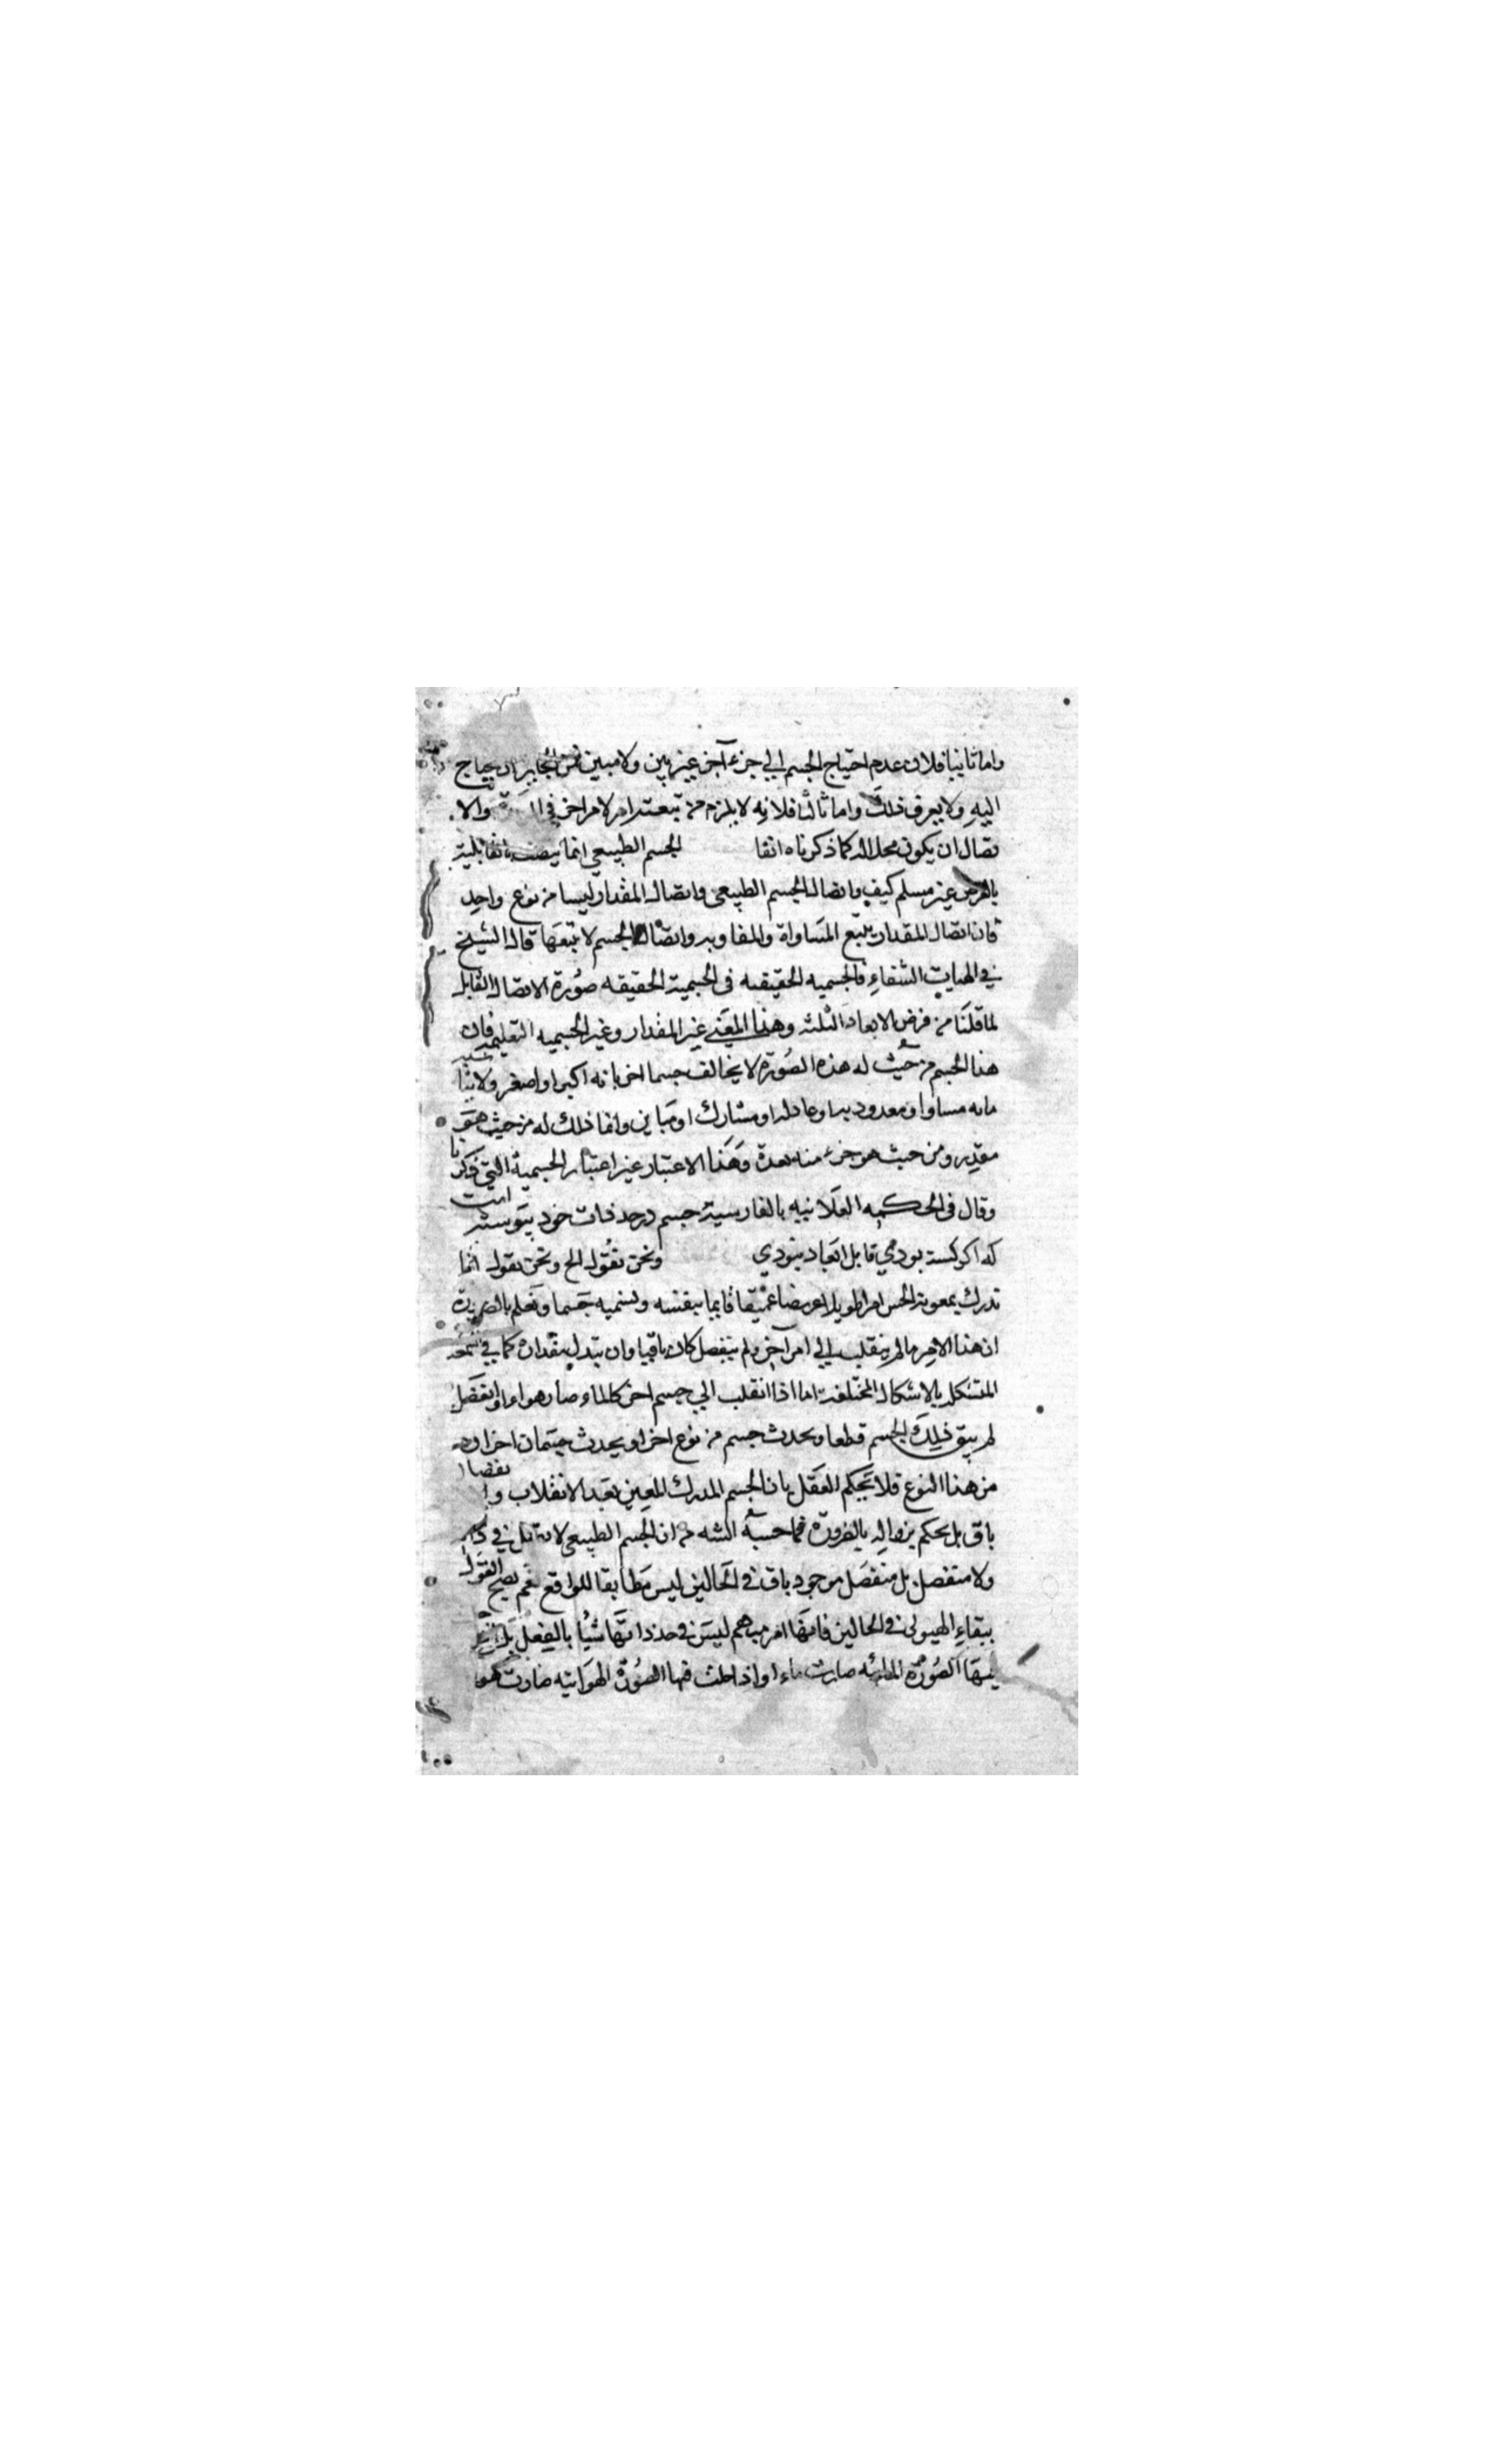 واما ثانيا فلان عدم احتياج الجسم الي جزء آخر غير بين ولا مبين فمن الجايز ان يحتاج
اليه ولا يعرف ذلك واما ثالثا فلانه لا يلزم من تبعية امر لامر اخر في والا
كما ذكرناه انفا الجسم الطبيعي انما يتصف بالقابلية
بالعرض غير مسلم كيف واتصال الجسم الطبيعي واتصال المقدار ليسا من نوع واحد
فان اتصال المقدار يتبع المساواة والمفاوته واتصال الجسم لا يتبعها قال الشيخ
في الهيات الشفاء فالجسميه الحقيقيه فى الجسمية الحقيقه صورة الاتصال القابل
لما قلنا من فرض الابعاد الثلثه وهذا المعني غير المقدار وغير الجسميه التعليميه فان
هذا الجسم من حيث له هذه الصورة لا يخالف جسما اخر بانه اكبر او اصغر ولا يناسبه
بانه مساو او معدود به او عاد له او مشارك او مباين وانما ذلك له من حيث هو
مقدر ومن حيث هو جزء منه يعده وهذا الاعتبار غير اعتبار الجسمية التي ذكرنا
وقال فى الحكمه العلائيه بالفارسية جسم در حد ذات خود پيوسته است
كه اكر كسسته بودي قابل ابعاد نبودي ونحن نقول الخ ونحن نقول انما
ندرك بمعونة الحس امرا طويلا عريضا عميقا قايما بنفسه ونسميه جسما ونعلم بالضرورة
ان هذا الامر ما لم ينقلب الي امر آخر ولم ينفصل كان باقيا وان تبدل مقداره كما في الشمعه
المتشكله بالاشكال المختلفة اما اذا انقلب الي جسم اخر كالماء صار هواء او انفصل
لم يبق ذلك الجسم قطعا ويحدث جسم من نوع اخر او يحدث جسمان اخران
من هذا النوع فلا يحكم العقل بان الجسم المدرك المعين بعد الانقلاب والانفصال
باق بل يحكم بزواله بالضرورة فما حسبه من ان الجسم الطبيعي لا متصل في ذاته
ولا منفصل بل منفصل موجود باق في الحالين ليس مطابقا للواقع نعم يصح القول
ببقاء الهيولى في الحالين فانها امر مبهم ليس في حد ذاتها شيئا بالفعل بل
فيها الصورة المائيه صارت ماء واذا حلت فيها الصورة الهوائيه صارت هواء